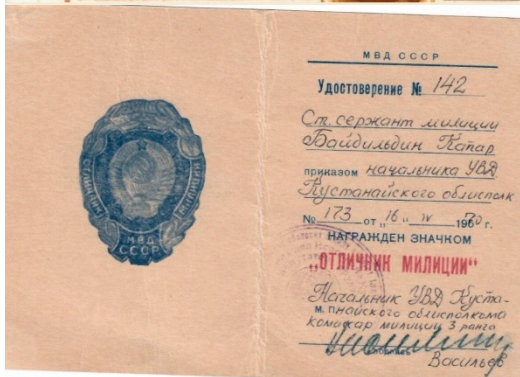 ОТЛИЧНИК МИЛИЦИИ
МВД
СССР
МВД СССР
Удостоверение № 142
Ст. сержант милиции
Байдильдин Капар
приказом начальника УВД
Кустанайского облисполк
№ 173 от „16„ IV 1970 г.
НАГРАЖДЕН ЗНАЧКОМ
„ОТЛИЧНИК МИЛИЦИИ“
Начальник УВД Куста-
М. П. найского облисполкома
комиссар милиции 3 ранга
Васильев